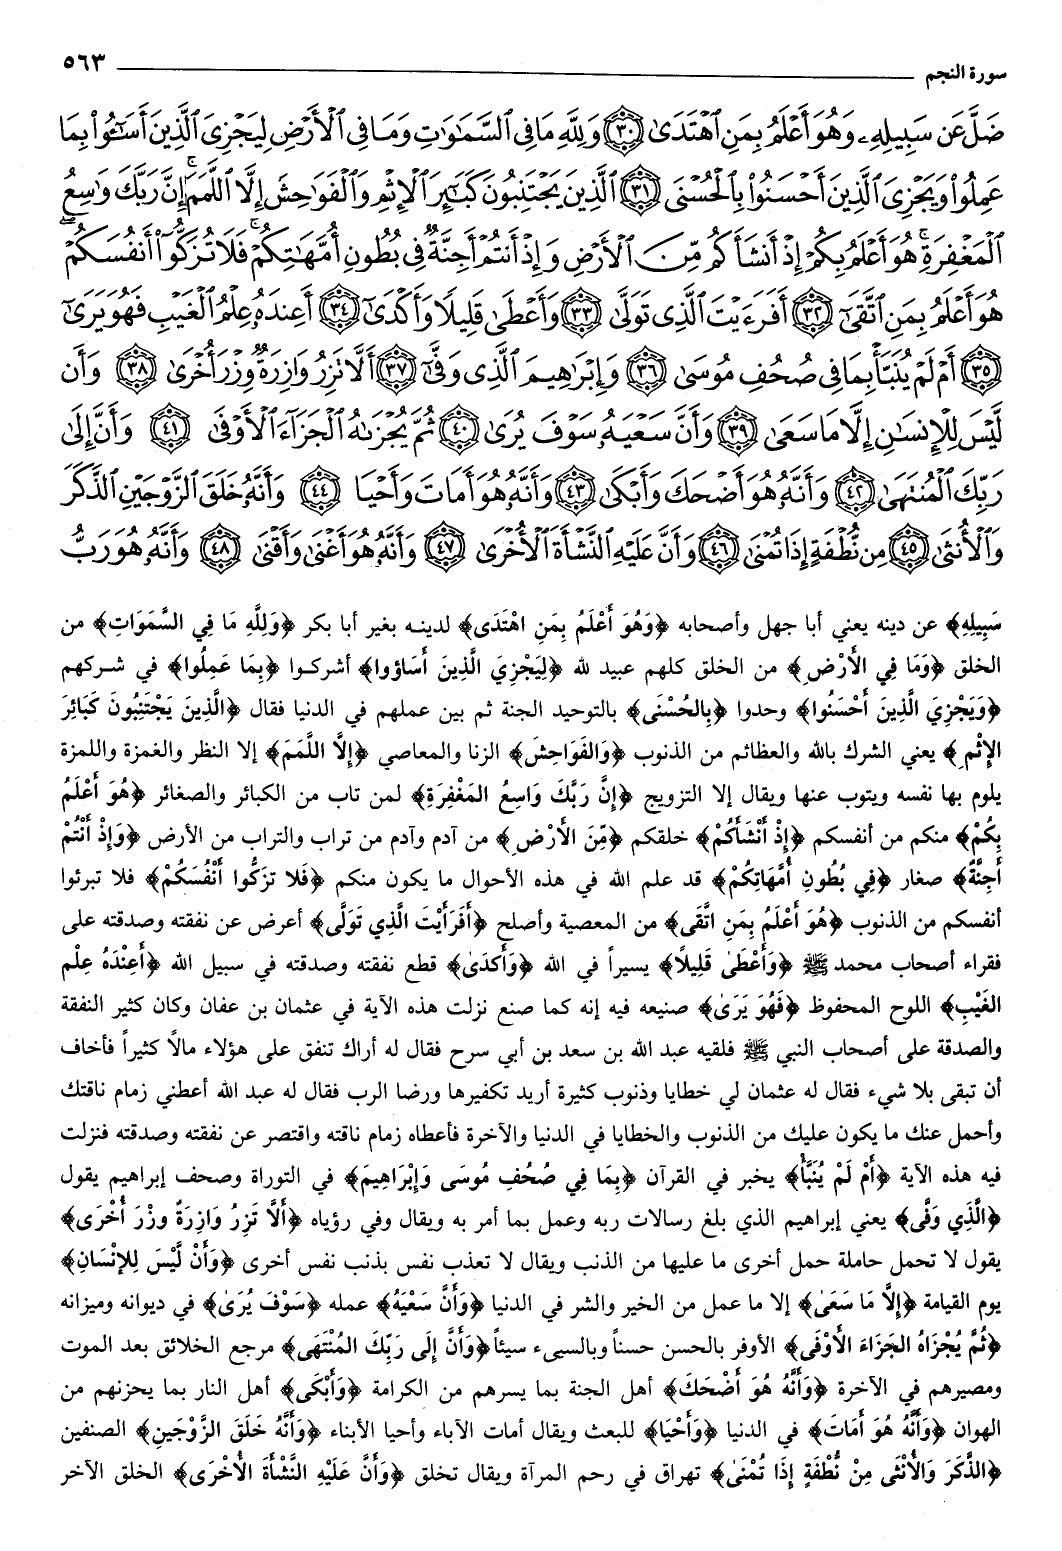 سورة النجم ٥٦٣
ضَلَّ عَن سَبِيلِهِۦ وَهُوَ أَعْلَمُ بِمَنِ ٱهْتَدَىٰ ٣٠ وَلِلَّهِ مَا فِى ٱلسَّمَـٰوَٰتِ وَمَا فِى ٱلْأَرْضِ لِيَجْزِىَ ٱلَّذِينَ أَسَـٰٓـُٔوا۟ بِمَا
عَمِلُوا۟ وَيَجْزِىَ ٱلَّذِينَ أَحْسَنُوا۟ بِٱلْحُسْنَى ٣١ ٱلَّذِينَ يَجْتَنِبُونَ كَبَـٰٓئِرَ ٱلْإِثْمِ وَٱلْفَوَٰحِشَ إِلَّا ٱللَّمَمَ ۚ إِنَّ رَبَّكَ وَٰسِعُ
ٱلْمَغْفِرَةِ ۚ هُوَ أَعْلَمُ بِكُمْ إِذْ أَنشَأَكُم مِّنَ ٱلْأَرْضِ وَإِذْ أَنتُمْ أَجِنَّةٌ فِى بُطُونِ أُمَّهَـٰتِكُمْ ۖ فَلَا تُزَكُّوٓا۟ أَنفُسَكُمْ ۖ
هُوَ أَعْلَمُ بِمَنِ ٱتَّقَىٰٓ ٣٢ أَفَرَءَيْتَ ٱلَّذِى تَوَلَّىٰ ٣٣ وَأَعْطَىٰ قَلِيلًا وَأَكْدَىٰٓ ٣٤ أَعِندَهُۥ عِلْمُ ٱلْغَيْبِ فَهُوَ يَرَىٰٓ
٣٥ أَمْ لَمْ يُنَبَّأْ بِمَا فِى صُحُفِ مُوسَىٰ ٣٦ وَإِبْرَٰهِيمَ ٱلَّذِى وَفَّىٰٓ ٣٧ أَلَّا تَزِرُ وَازِرَةٌ وِزْرَ أُخْرَىٰ ٣٨ وَأَن
لَّيْسَ لِلْإِنسَـٰنِ إِلَّا مَا سَعَىٰ ٣٩ وَأَنَّ سَعْيَهُۥ سَوْفَ يُرَىٰ ٤٠ ثُمَّ يُجْزَىٰهُ ٱلْجَزَآءَ ٱلْأَوْفَىٰ ٤١ وَأَنَّ إِلَىٰ
رَبِّكَ ٱلْمُنتَهَىٰ ٤٢ وَأَنَّهُۥ هُوَ أَضْحَكَ وَأَبْكَىٰ ٤٣ وَأَنَّهُۥ هُوَ أَمَاتَ وَأَحْيَا ٤٤ وَأَنَّهُۥ خَلَقَ ٱلزَّوْجَيْنِ ٱلذَّكَرَ
وَٱلْأُنثَىٰ ٤٥ مِن نُّطْفَةٍ إِذَا تُمْنَىٰ ٤٦ وَأَنَّ عَلَيْهِ ٱلنَّشْأَةَ ٱلْأُخْرَىٰ ٤٧ وَأَنَّهُۥ هُوَ أَغْنَىٰ وَأَقْنَىٰ ٤٨ وَأَنَّهُۥ هُوَ رَبُّ
سَبِيلِهِ﴾ عن دينه يعني أبا جهل وأصحابه ﴿وَهُوَ أَعْلَمُ بِمَنِ اهْتَدَى﴾ لدينه بغير أبا بكر ﴿وَلِلَّهِ مَا فِي السَّمَوَاتِ﴾ من
الخلق ﴿وَمَا فِي الأَرْضِ﴾ من الخلق كلهم عبيد لله ﴿لِيَجْزِيَ الَّذِينَ أَسَاؤوا﴾ أشركوا ﴿بِمَا عَمِلُوا﴾ في شركهم
﴿وَيَجْزِيَ الَّذِينَ أَحْسَنُوا﴾ وحدوا ﴿بِالحُسْنَى﴾ بالتوحيد الجنة ثم بين عملهم في الدنيا فقال ﴿الَّذِينَ يَجْتَنِبُونَ كَبَائِرَ
الإِثْمِ﴾ يعني الشرك بالله والعظائم من الذنوب ﴿وَالفَوَاحِشَ﴾ الزنا والمعاصي ﴿إِلَّا اللَّمَمَ﴾ إلا النظر والغمزة واللمزة
يلوم بها نفسه ويتوب عنها ويقال إلا التزويج ﴿إِنَّ رَبَّكَ وَاسِعُ المَغْفِرَةِ﴾ لمن تاب من الكبائر والصغائر ﴿هُوَ أَعْلَمُ
بِكُمْ﴾ منكم من أنفسكم ﴿إِذْ أَنْشَأَكُمْ﴾ خلقكم ﴿مِّنَ الأَرْضِ﴾ من آدم وآدم من تراب والتراب من الأرض ﴿وَإِذْ أَنْتُمْ
أَجِنَّةٌ﴾ صغار ﴿فِي بُطُونِ أُمَّهَاتِكُمْ﴾ قد علم الله في هذه الأحوال ما يكون منكم ﴿فَلَا تزَكُّوا أَنْفُسَكُمْ﴾ فلا تبرئوا
أنفسكم من الذنوب ﴿هُوَ أَعْلَمُ بِمَنِ اتَّقَى﴾ من المعصية وأصلح ﴿أَفَرَأَيْتَ الَّذِي تَوَلَّى﴾ أعرض عن نفقته وصدقته على
فقراء أصحاب محمد ﷺ ﴿وَأَعْطَىٰ قَلِيلاً﴾ يسيراً في الله ﴿وَأَكدَىٰ﴾ قطع نفقته وصدقته في سبيل الله ﴿أَعِنْدَهُ عِلْم
الغَيْبِ﴾ اللوح المحفوظ ﴿فَهُوَ يَرَىٰ﴾ صنيعه فيه إنه كما صنع نزلت هذه الآية في عثمان بن عفان وكان كثير النفقة
والصدقة على أصحاب النبي ﷺ فلقيه عبد الله بن سعد بن أبي سرح فقال له أراك تنفق على هؤلاء مالاً كثيراً فأخاف
أن تبقى بلا شيء فقال له عثمان لي خطايا وذنوب كثيرة أريد تكفيرها ورضا الرب فقال له عبد الله أعطني زمام ناقتك
وأحمل عنك ما يكون عليك من الذنوب والخطايا في الدنيا والآخرة فأعطاه زمام ناقته واقتصر عن نفقته وصدقته فنزلت
فيه هذه الآية ﴿أَمْ لَمْ يُنَبَّأْ﴾ يخبر في القرآن ﴿بِمَا فِي صُحُفِ مُوسَى وَإِبْرَاهِيمَ﴾ في التوراة وصحف إبراهيم يقول
﴿الَّذِي وَفَّى﴾ يعني إبراهيم الذي بلغ رسالات ربه وعمل بما أمر به ويقال وفي رؤياه ﴿أَلَّا تَزِرُ وَازِرَةٌ وِزْرَ أُخْرَى﴾
يقول لا تحمل حاملة حمل أخرى ما عليها من الذنب ويقال لا تعذب نفس بذنب نفس أخرى ﴿وَأَنْ لَّيْسَ لِلإِنْسَانِ﴾
يوم القيامة ﴿إِلَّا مَا سَعَىٰ﴾ إلا ما عمل من الخير والشر في الدنيا ﴿وَأَنَّ سَعْيَهُ﴾ عمله ﴿سَوْفَ يُرَىٰ﴾ في ديوانه وميزانه
﴿ثُمَّ يُجْزَاهُ الجَزَاءَ الأَوْفَى﴾ الأوفر بالحسن حسناً وبالسيىء سيئاً ﴿وَأَنَّ إِلَى رَبِّكَ المُنْتَهَى﴾ مرجع الخلائق بعد الموت
ومصيرهم في الآخرة ﴿وَأَنَّهُ هُوَ أَضْحَكَ﴾ أهل الجنة بما يسرهم من الكرامة ﴿وَأَبْكَى﴾ أهل النار بما يحزنهم من
الهوان ﴿وَأَنَّهُ هُوَ أَمَاتَ﴾ في الدنيا ﴿وَأَحْيَا﴾ للبعث ويقال أمات الآباء وأحيا الأبناء ﴿وَأَنَّهُ خَلَقَ الزَّوْجَينِ﴾ الصنفين
﴿الذَّكَرَ وَالأُنْثَى مِنْ نُّطْفَةٍ إِذَا تُمْنَى﴾ تهراق في رحم المرآة ويقال تخلق ﴿وَأَنَّ عَلَيْهِ النَّشْأَةَ الأُخْرَى﴾ الخلق الآخر